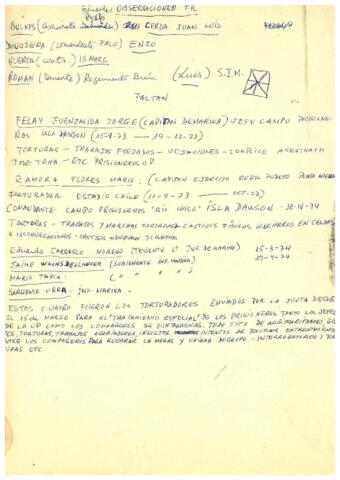 OBSERVACIONES T.R.
BULNES (Comandante CERDA JUAN LUIS
DINOSERA (comandante FACH) ENZO
HUERTA (contr.) ISMAEL
ROMAN (teniente) Regimiento Buin (Luis) S.I.M.
FALTAN
FELAY FUENZALIDA JORGE (CAPITAN DE MARINA) JEFE CAMPO PRISIONE-
ROS ISLA DAWSON (15-9-73 — 19-12-73)
TORTURAS - TRABAJOS FORZADOS - VEJACIONES - COMPLICE ASESINATO
JOSE TOHA - ETC PRISIONEROS.
ZAMORA FLORES MARIO: (CAPITAN EJERCITO PUNTA ARENAS
TORTURADOR ESTADIO CHILE (11-9-73 OCT-73)
COMANDANTE CAMPO PRISIONEROS "RIO CHICO" ISLA DAWSON - 30-IV-74
TORTURAS - TRABAJOS Y MARCHAS FORZADAS CASTIGOS FISICOS ENCIERROS EN CELDAS
INCOMUNICACIONES - CASTIGOS INDIVIDUAL Y COLECTIVA
EDUARDO CARRASCO MORENO (TENIENTE 1º INF. DE MARINA) 15-3-74
JAIME (SUBTENIENTE INF. MARINA) -4-74
MARIO TAPIA: ( " " " " )
SARGENTO URRA: INF. MARINA -
ESTOS CUATRO FUERON LOS TORTURADORES ENVIADOS POR LA JUNTA DESDE
EL 15 DE MARZO PARA EL "TRATAMIENTO ESPECIAL" DE LOS PRISIONEROS TANTO LOS JEFES
DE LA UP COMO LOS COMPAÑEROS DE PUNTARENAS. TODO TIPO DE ARBITRARIEDADES
TORTURAS, TRABAJOS AGOBIADORES, INSULTOS INTENTOS DE ENTREDIMIENTO
ENTRE LOS COMPAÑEROS PARA QUEBRAR LA MORAL Y UNIDAD DE GRUPO - INTERROGATORIOS Y TOR-
TURAS ETC.